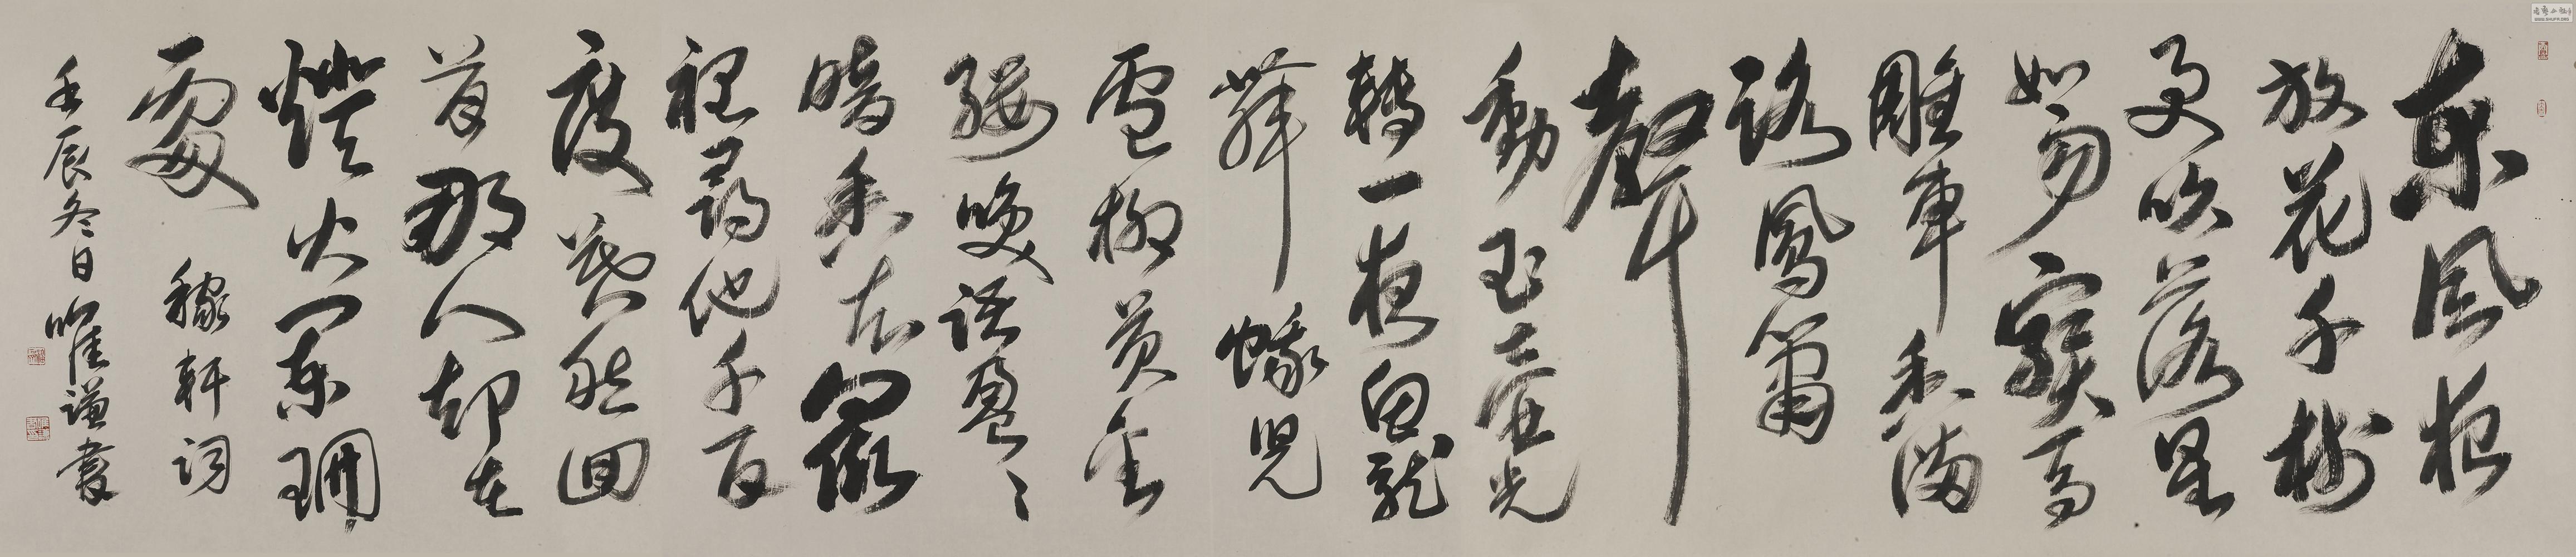 東風夜
放花千樹
更吹落星
如雨寶馬
雕車香滿
路鳳簫
聲
動玉壺光
轉一夜魚龍
舞 蛾兒
雪柳黃金
縷咲語盈〻
暗香去眾
裡尋他千百
度驀然回
首那人却在
燈火闌珊
處 稼軒詞
壬辰冬日唯謙書